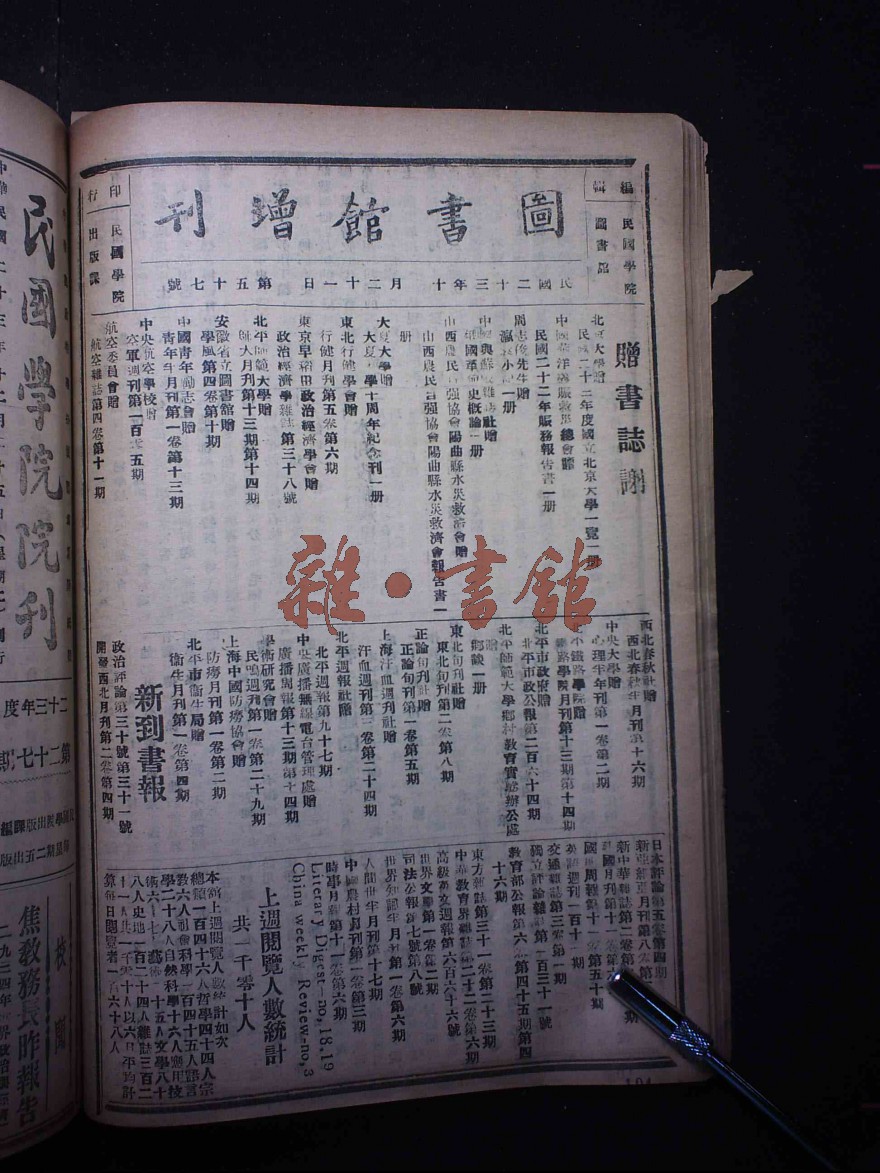 圖書館增刊
編輯 民國學院圖書館
印行 民國學院出版課
民國二十三年十二月二十一日 第五十七號
贈書誌謝
北京大學贈
民國二十二年度國立北京大學一覽一册
中國華洋義賑救災總會贈
民國二十二年賑務報告書一册
周志俊先生贈
瀛寰小 一册
中國與蘇俄雜誌社贈
革命史概論一册
山西農民自强協會陽曲縣水災救濟會贈
山西農民自强協會陽曲縣水災救濟會報告書一
册
大夏大學贈
大夏大學十周年紀念刊一册
東北行健學會贈
行健月刊第五卷第六期
東京早稻田政治經濟學會贈
政治經濟學雜誌第三十八號
北平師範大學贈
師大月刊第十三期第十四期
安徽省立圖書館贈
學風第四卷第十期
中國青年勵志會贈
青年半月刊第一卷第十三期
中央航空學校贈
空軍週刊第一百零五期
航空委員會贈
航空雜誌第四卷第十一期
西北春秋社贈
西北春秋半月刊第十六期
中央大學贈
心理半年刊第一卷第二期
北平鐵路學院贈
鐵路學院月刊第十三期第十四期
北平市政府贈
北平市政公報第二百六十四期
北平師範大學鄉村教育實驗辦公處
贈
鄉談一册
東北旬刊社贈
東北旬刊第二卷第八期
正論旬刊社贈
正論旬刊第一卷第五期
上海汗血週刊社贈
汗血週刊第三卷第二十四期
北平週報社贈
北平週報第九十七期
中央廣播無線電台管理處贈
廣播周報第十三期第十四期
學術研究會贈
民鳴週刊第一卷第二十九期
上海中國防癆協會贈
防癆月刊第一卷第二期
北平市衛生局贈
衛生月刊第一卷第四期
新到書報
政治評論第三十號第三十一號
開發西北月刊第二卷第四期
日本評論第五卷第四期
新亞細亞月刊第八卷第
新中華雜誌第二卷第
建國月刊第十一卷第六期
國聞周報第十一卷第五十期
英語週刊一百十一期
交通雜誌第三卷第一期
獨立評論雜誌第一百三十一號
教育部公報第六卷第四十五期第四
十六期
東方雜誌第三十一卷第二十三期
中華教育界雜誌第二十二卷第六期
高級英文週報第六百六十六號
世界文學第一卷第二期
司法公報第七號第八號
世界知識半月刊第一卷第六期
人間世半月刊第十七期
中國農村月刊第一卷第三期
時事月報第十一卷第六期
Literary Digest—no, 18.19
China weekly Review—no, 3
上週閱覽人數統計
共一千零十人
本館上週閱覽人數統計如次
總類一百四十六人哲學四十四人宗
教六人社會科學一百四十五人語言
學二十八人自然科學十六人應用技
術六十七人藝術十五人文學八十
八人史地一百十四人雜誌三百二
十一人共一千零十人以六日平均計
算每日閱覽者一百六十八人
民國學院院刊
二十三年度
第二十七期
校聞
焦教務長昨報告